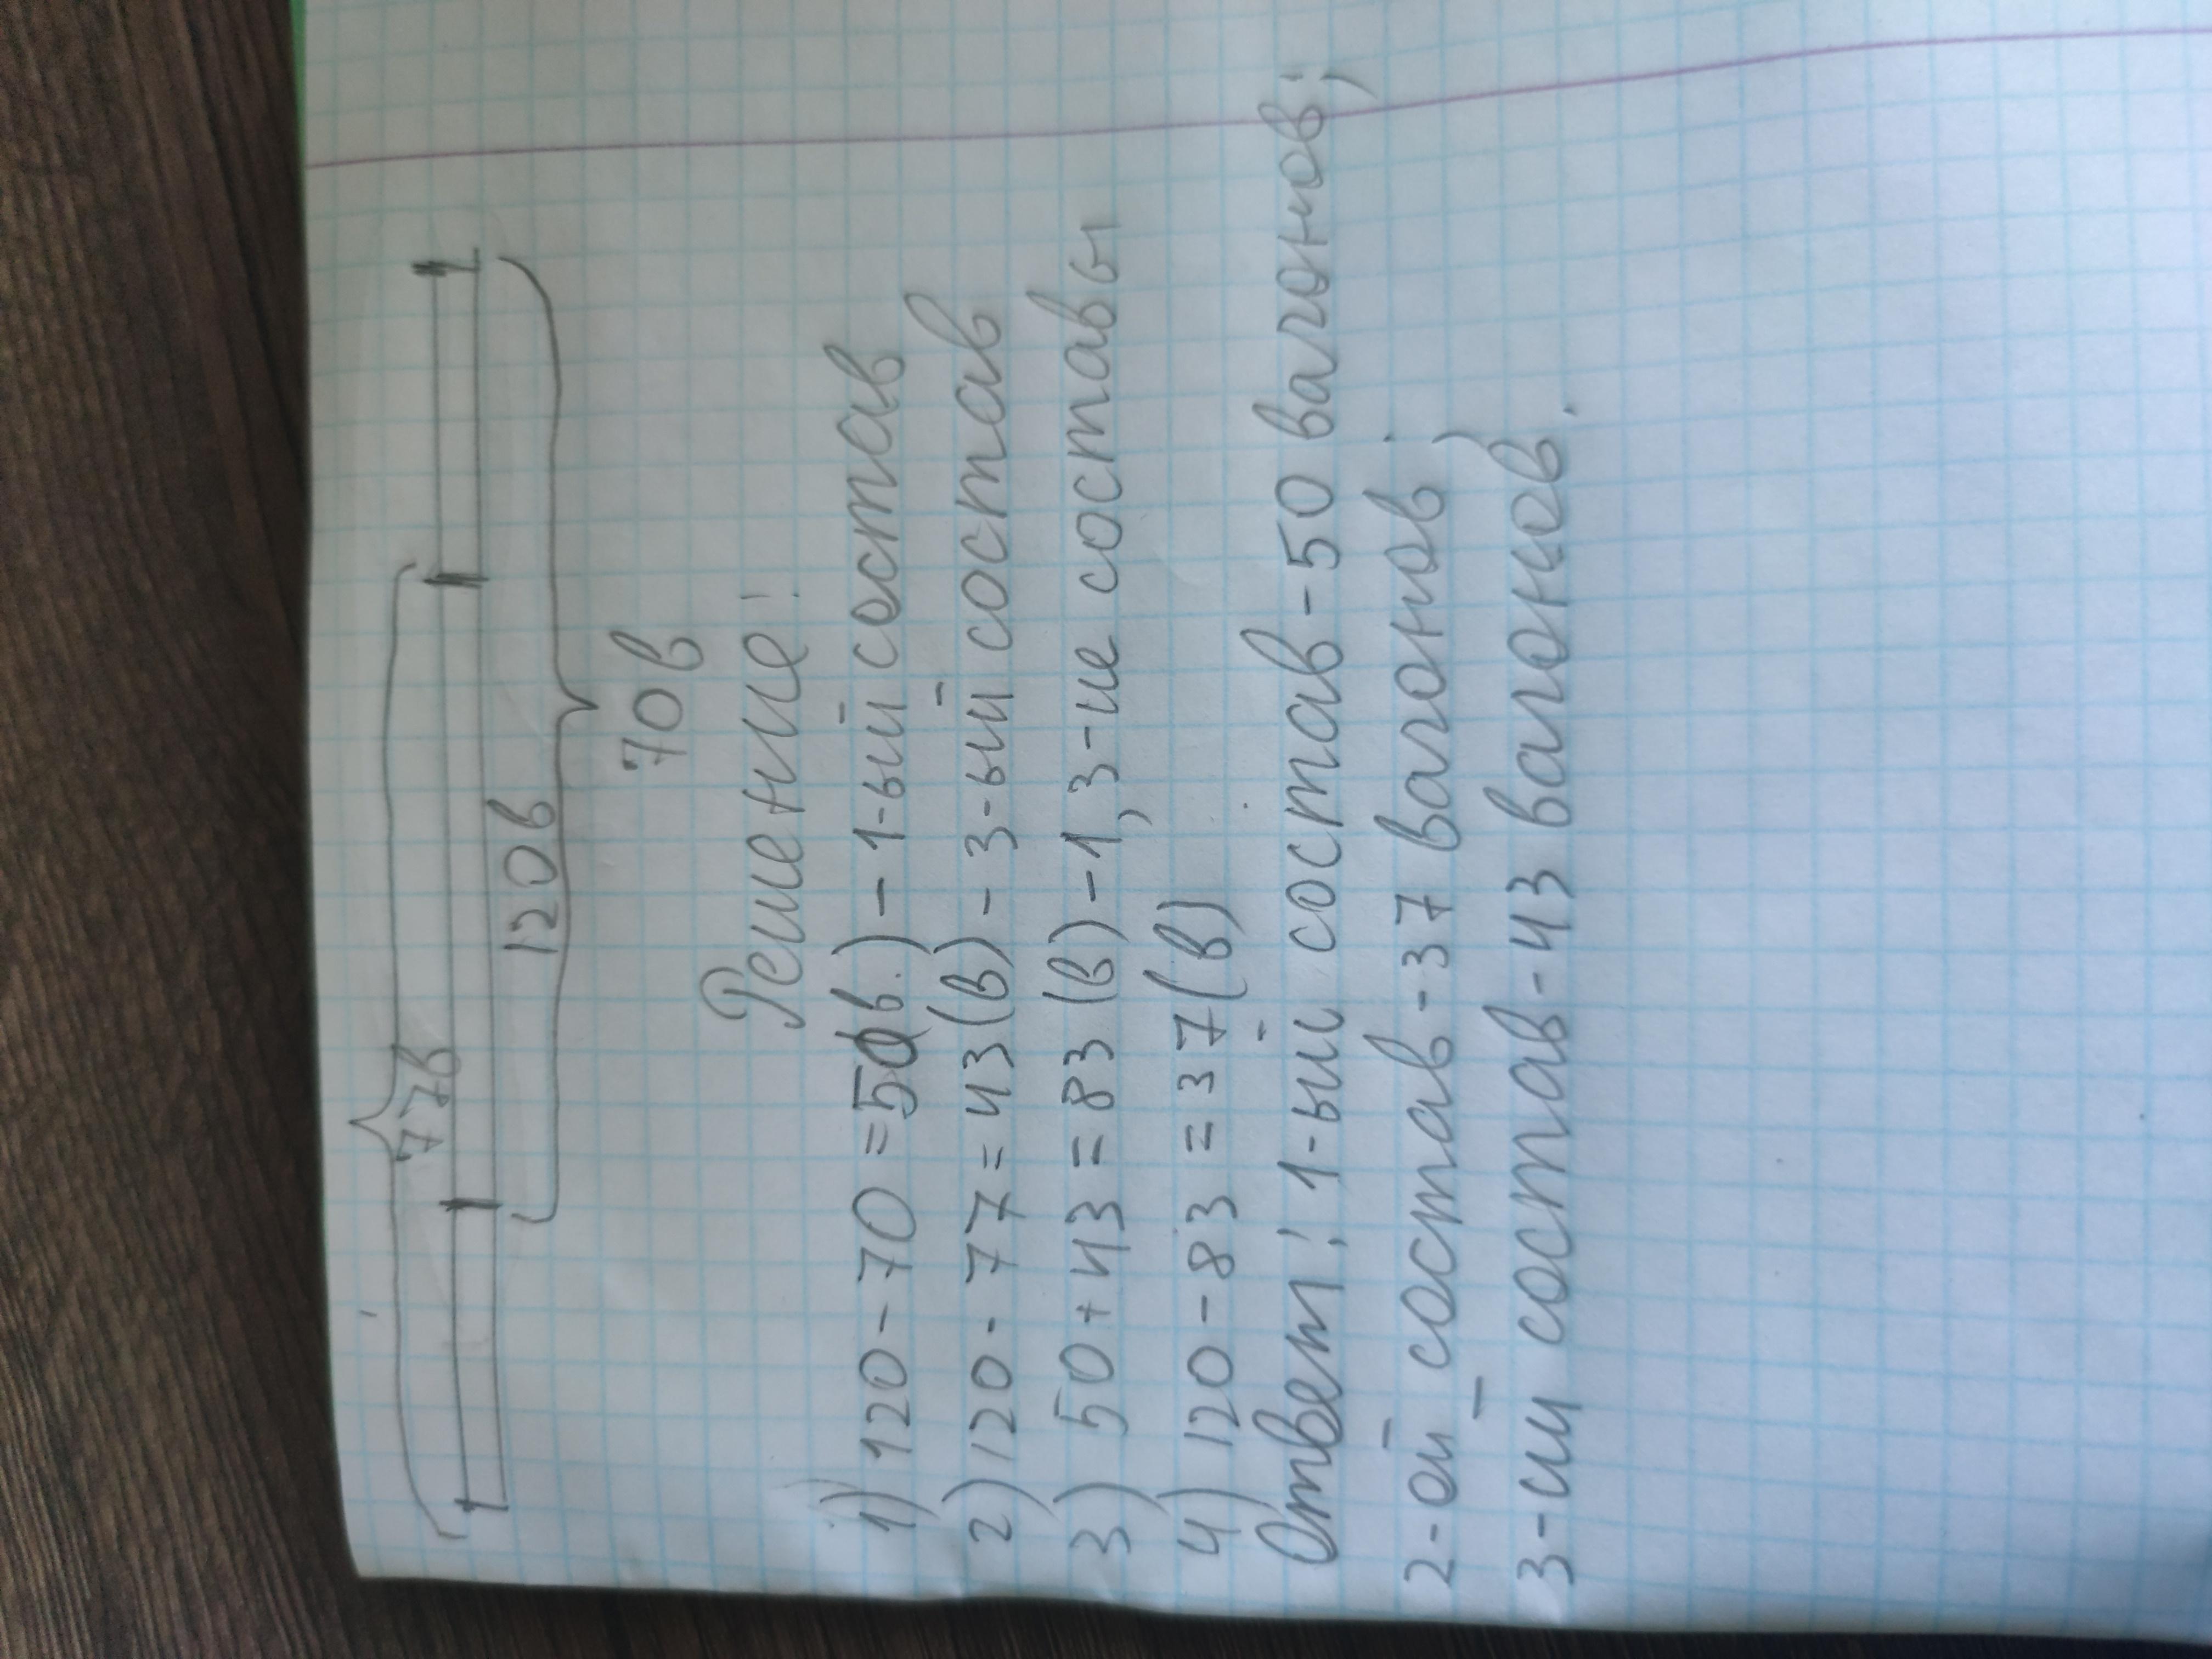 77в
120в
70в
Решение:
1) 120 - 70 = 50(в.) - 1-ый состав
2) 120 - 77 = 43(в) - 3-ый состав
3) 50 + 43 = 83 (в) - 1, 3-ие составы
4) 120 - 83 = 37(в)
Ответ: 1-ый состав - 50 вагонов;
2-ой состав - 37 вагонов;
3-ий состав - 43 вагонов.